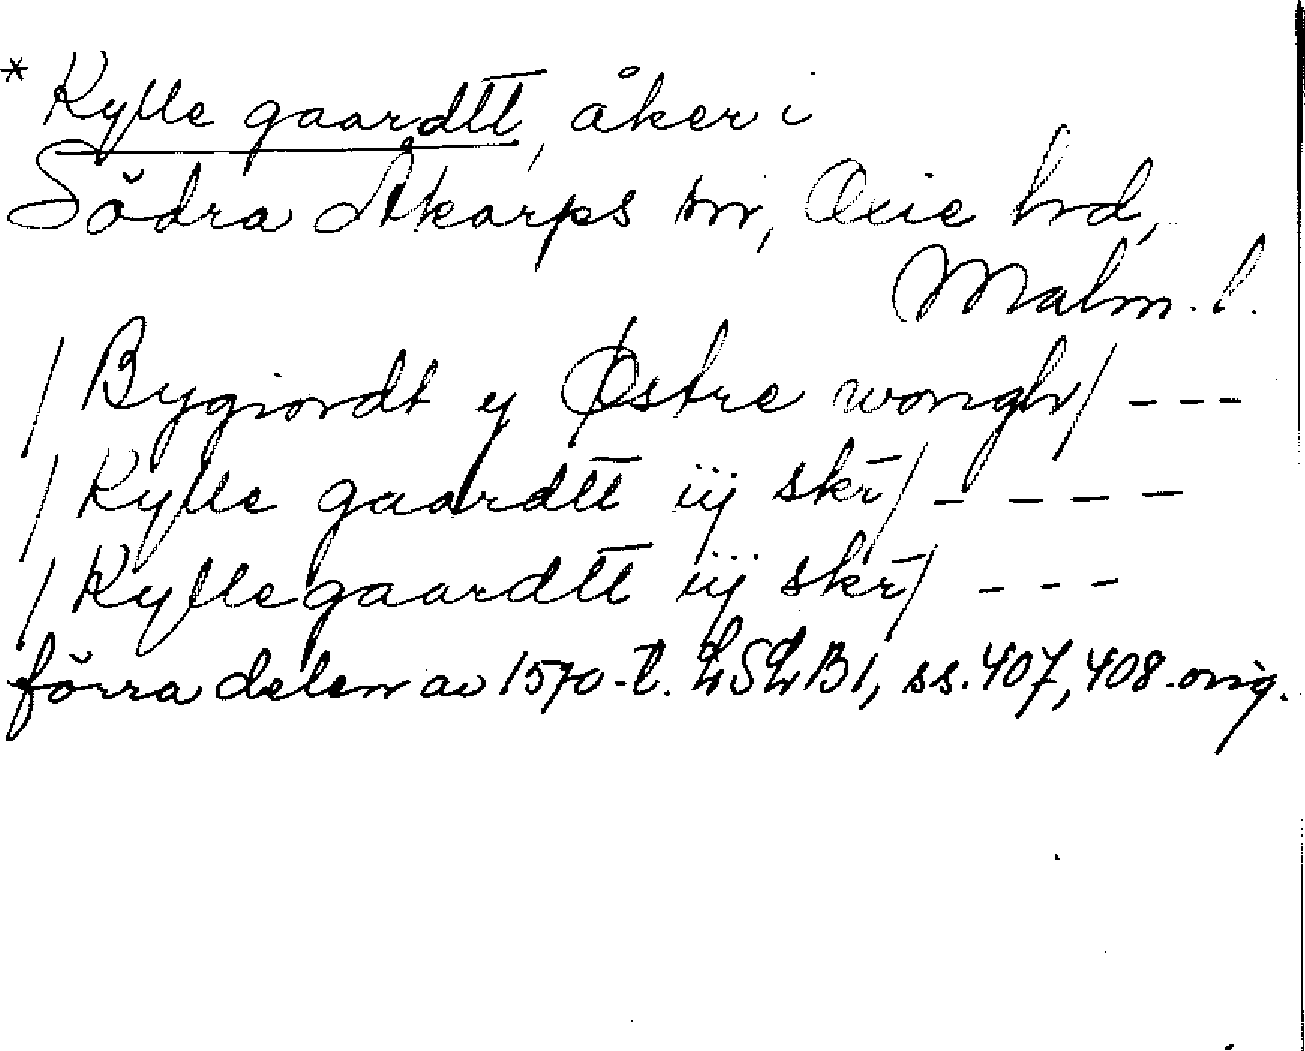 * Kylle gaardtt, åker i
Södra Åkarps sn, Oxie hd,
Malm. l.
/ Bygiordt y Østre wongh / - - -
/ Kylle gaardtt iij skr̄ / - - - -
/ Kyllegaardtt iij skr̄ / - - -
förra delen av 1570-t. LSLB1, ss. 407, 408. orig.